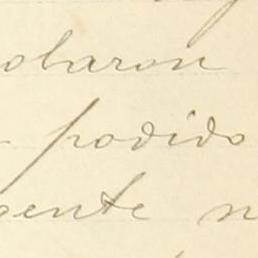 olaron
podido
ente n